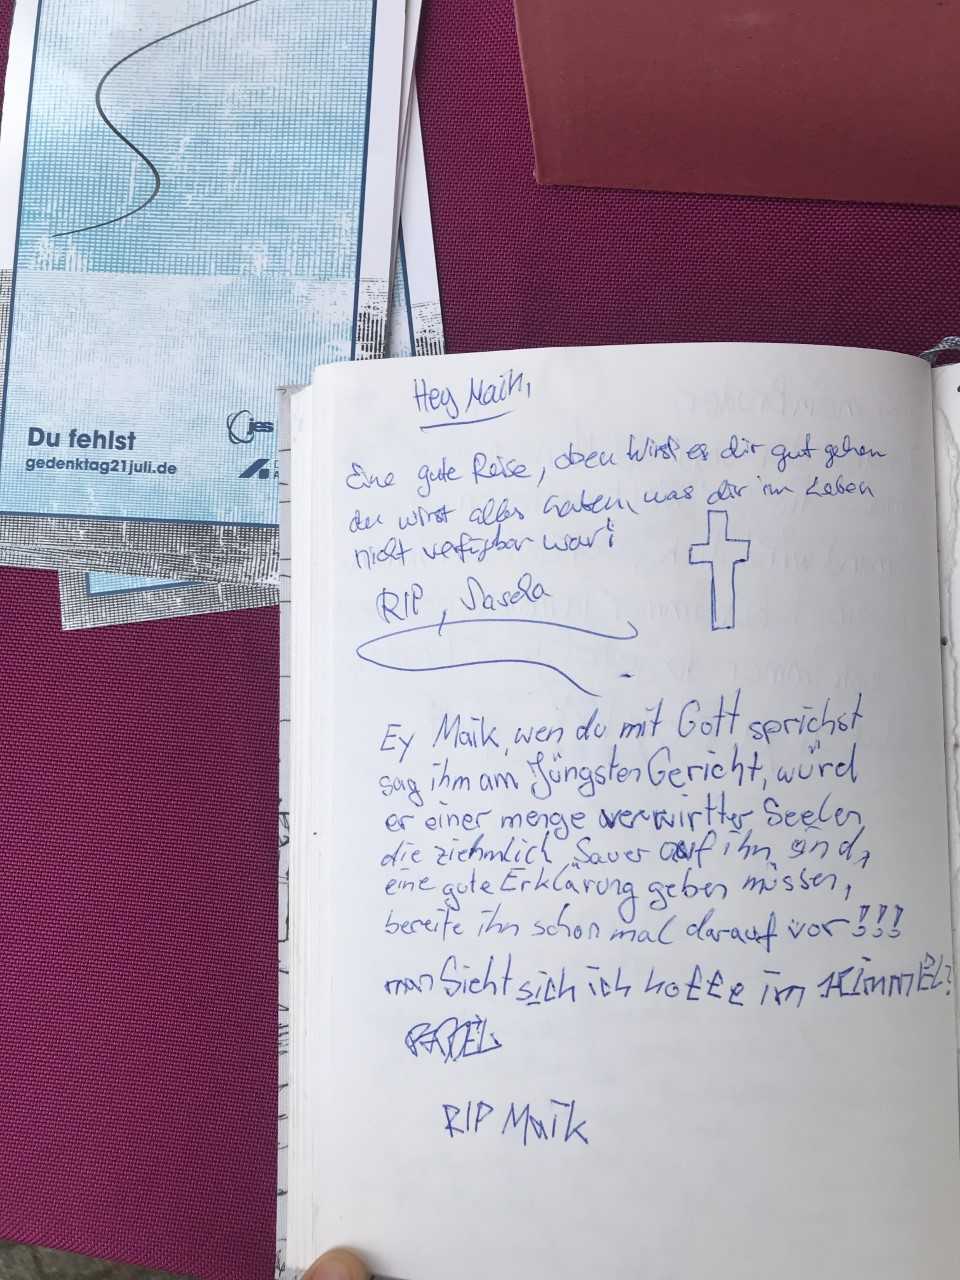 Du fehlst
gedenktag21juli.de
jes
Hey Maik,
Eine gute Reise, oben wirst es dir gut gehen
du wirst alles haben, was dir im Leben
nicht verfügbar war!
RIP, Sascha
Ey Maik, wen du mit Gott sprichst
sag ihm am Jüngsten Gericht, würd
er einer menge verwirtter Seelen
die ziehmlich Sauer auf ihn sind,
eine gute Erklärung geben müssen,
bereite ihn schon mal darauf vor!!!
man Sieht sich ich hoffe im HimmEL?
RIP Maik